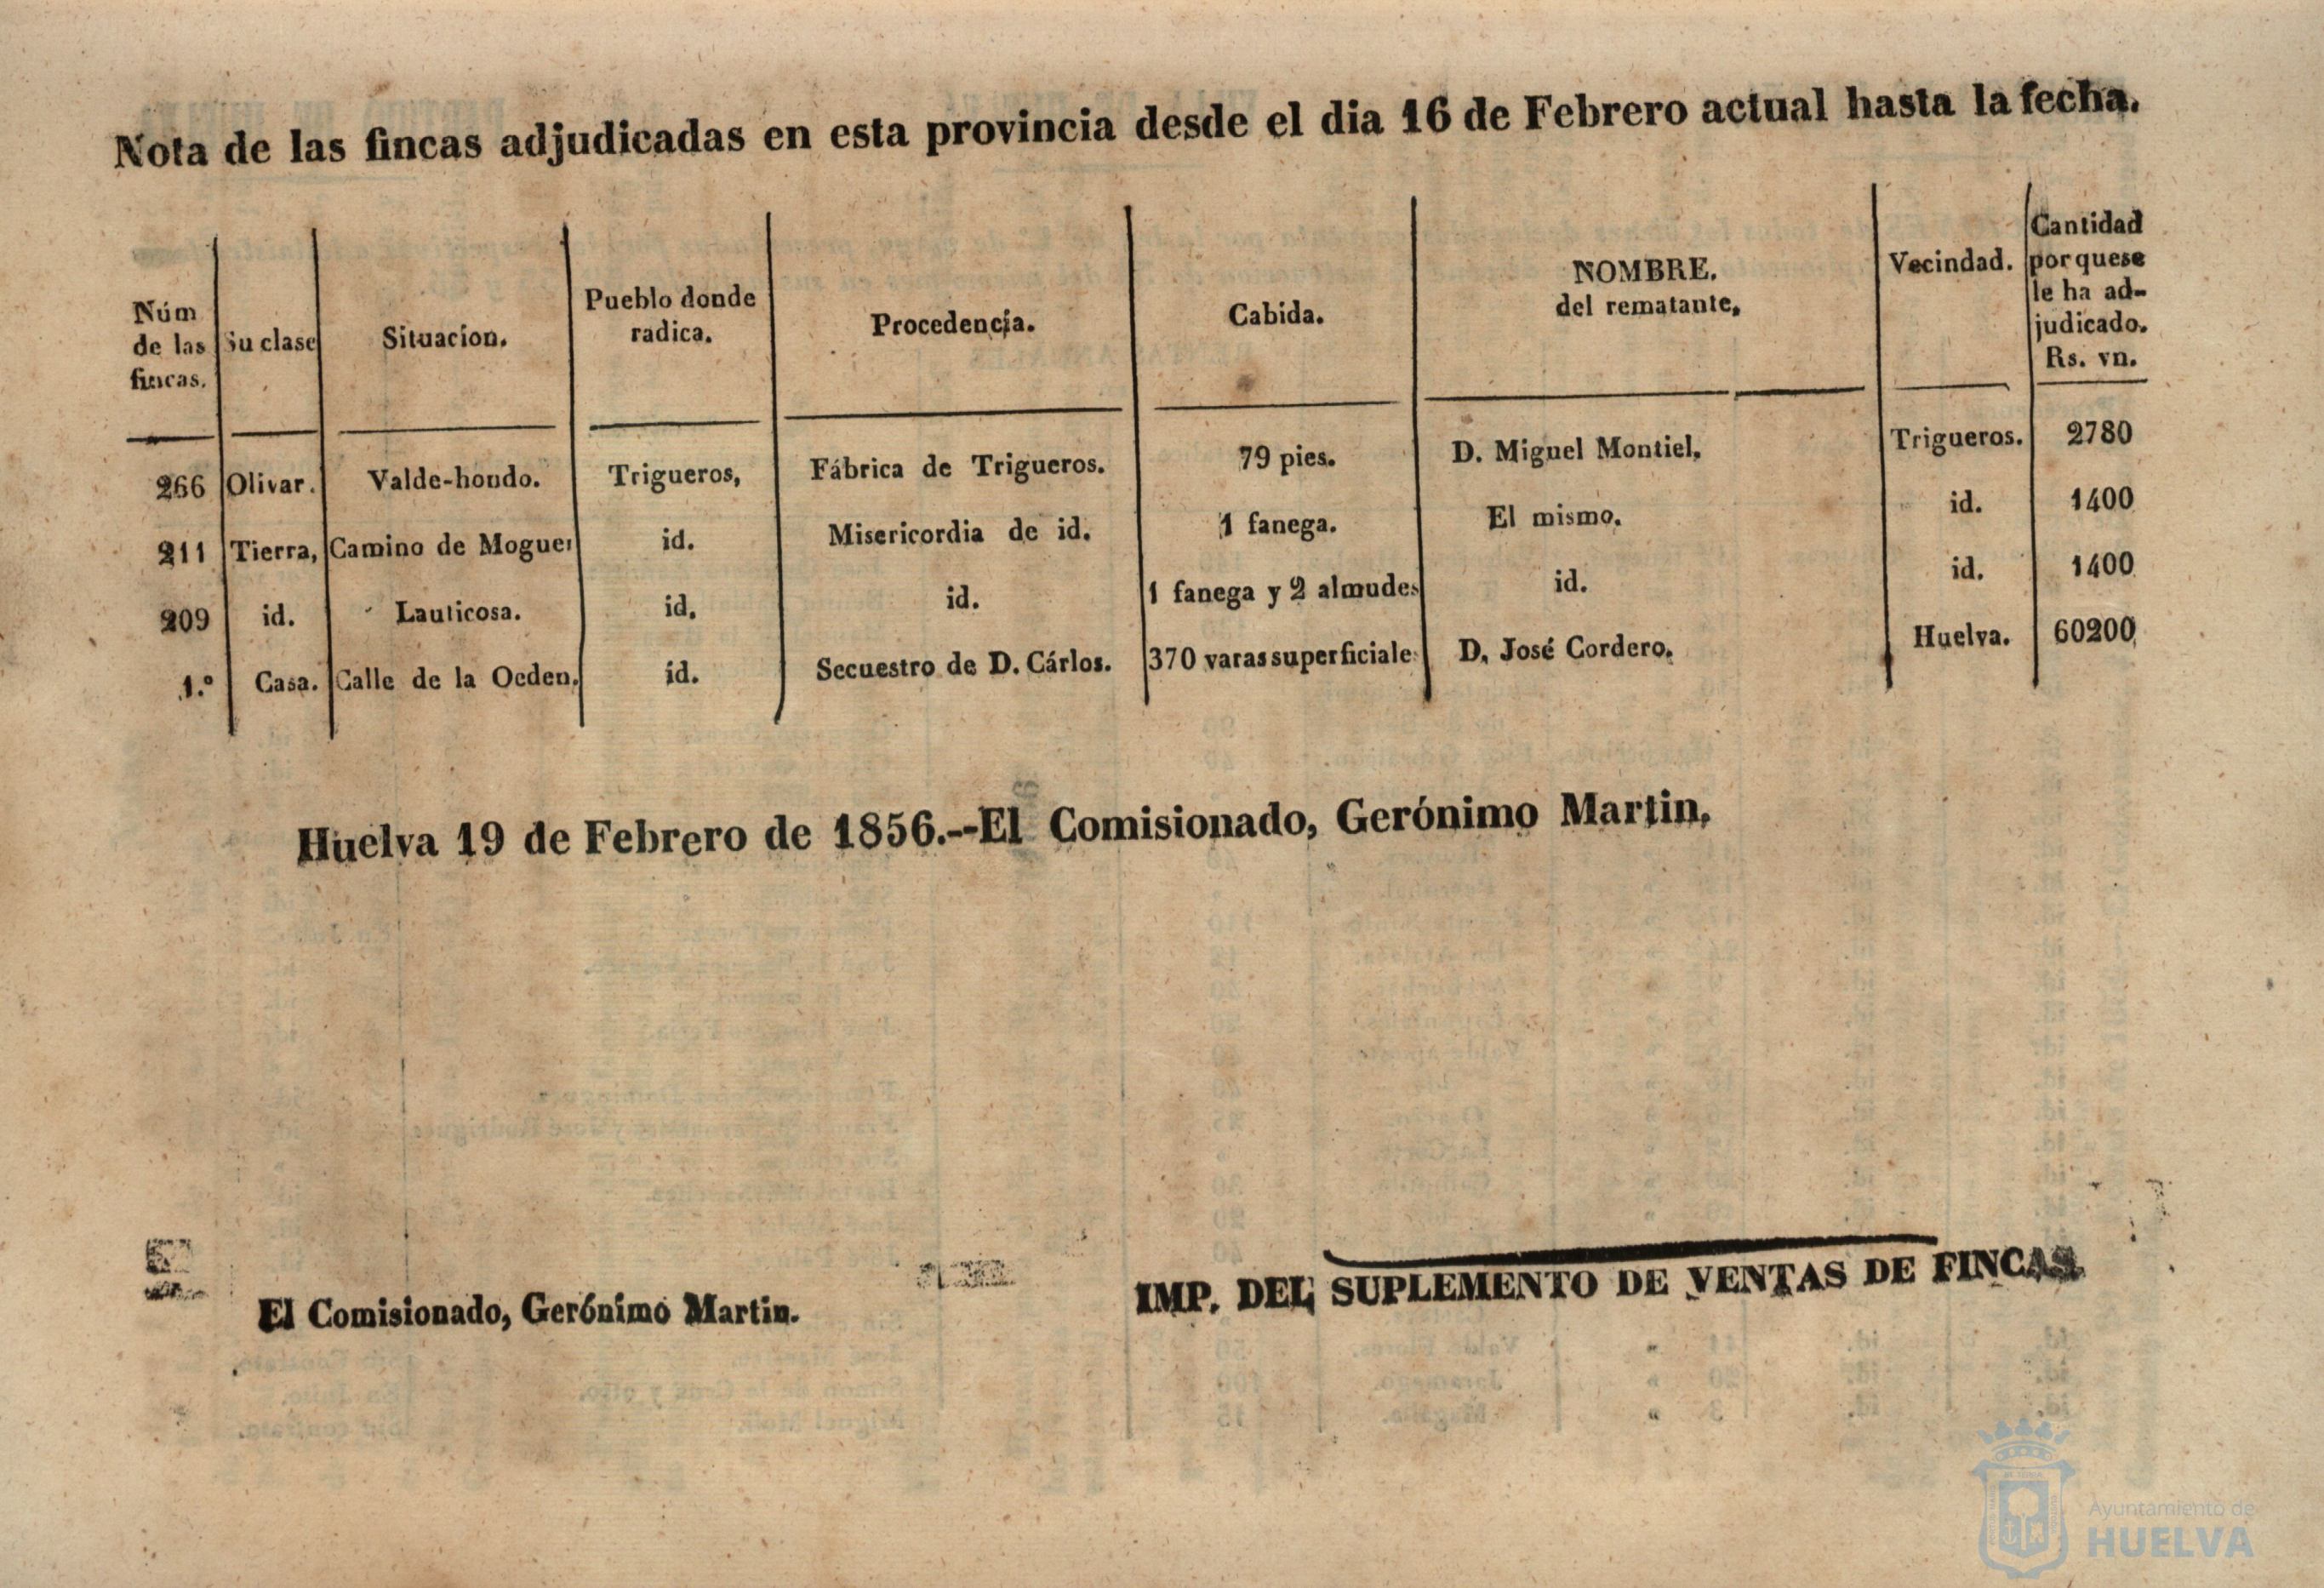 Nota de las fincas adjudicadas en esta provincia desde el dia 16 de Febrero actual hasta la fecha.
Núm de las fincas. Su clase Situacion. Pueblo donde radica. Procedencia. Cabida. NOMBRE. del rematante, Vecindad. Cantidad por que se le ha ad- judicado. Rs. vn.
266 Olivar. Valde-hondo. Trigueros, Fábrica de Trigueros. 79 pies. D. Miguel Montiel, Trigueros. 2780
211 Tierra, Camino de Moguer id. Misericordia de id. 1 fanega. El mismo, id. 1400
209 id. Lauticosa. id, id. 1 fanega y 2 almudes id. id. 1400
1.º Casa. Calle de la Oeden, id. Secuestro de D. Cárlos. 370 varas superficiale D, José Cordero, Huelva. 60200
Huelva 19 de Febrero de 1856.--El Comisionado, Gerónimo Martin,
El Comisionado, Gerónimo Martin.
IMP. DEL SUPLEMENTO DE VENTAS DE FINCAS
Ayuntamiento de
HUELVA